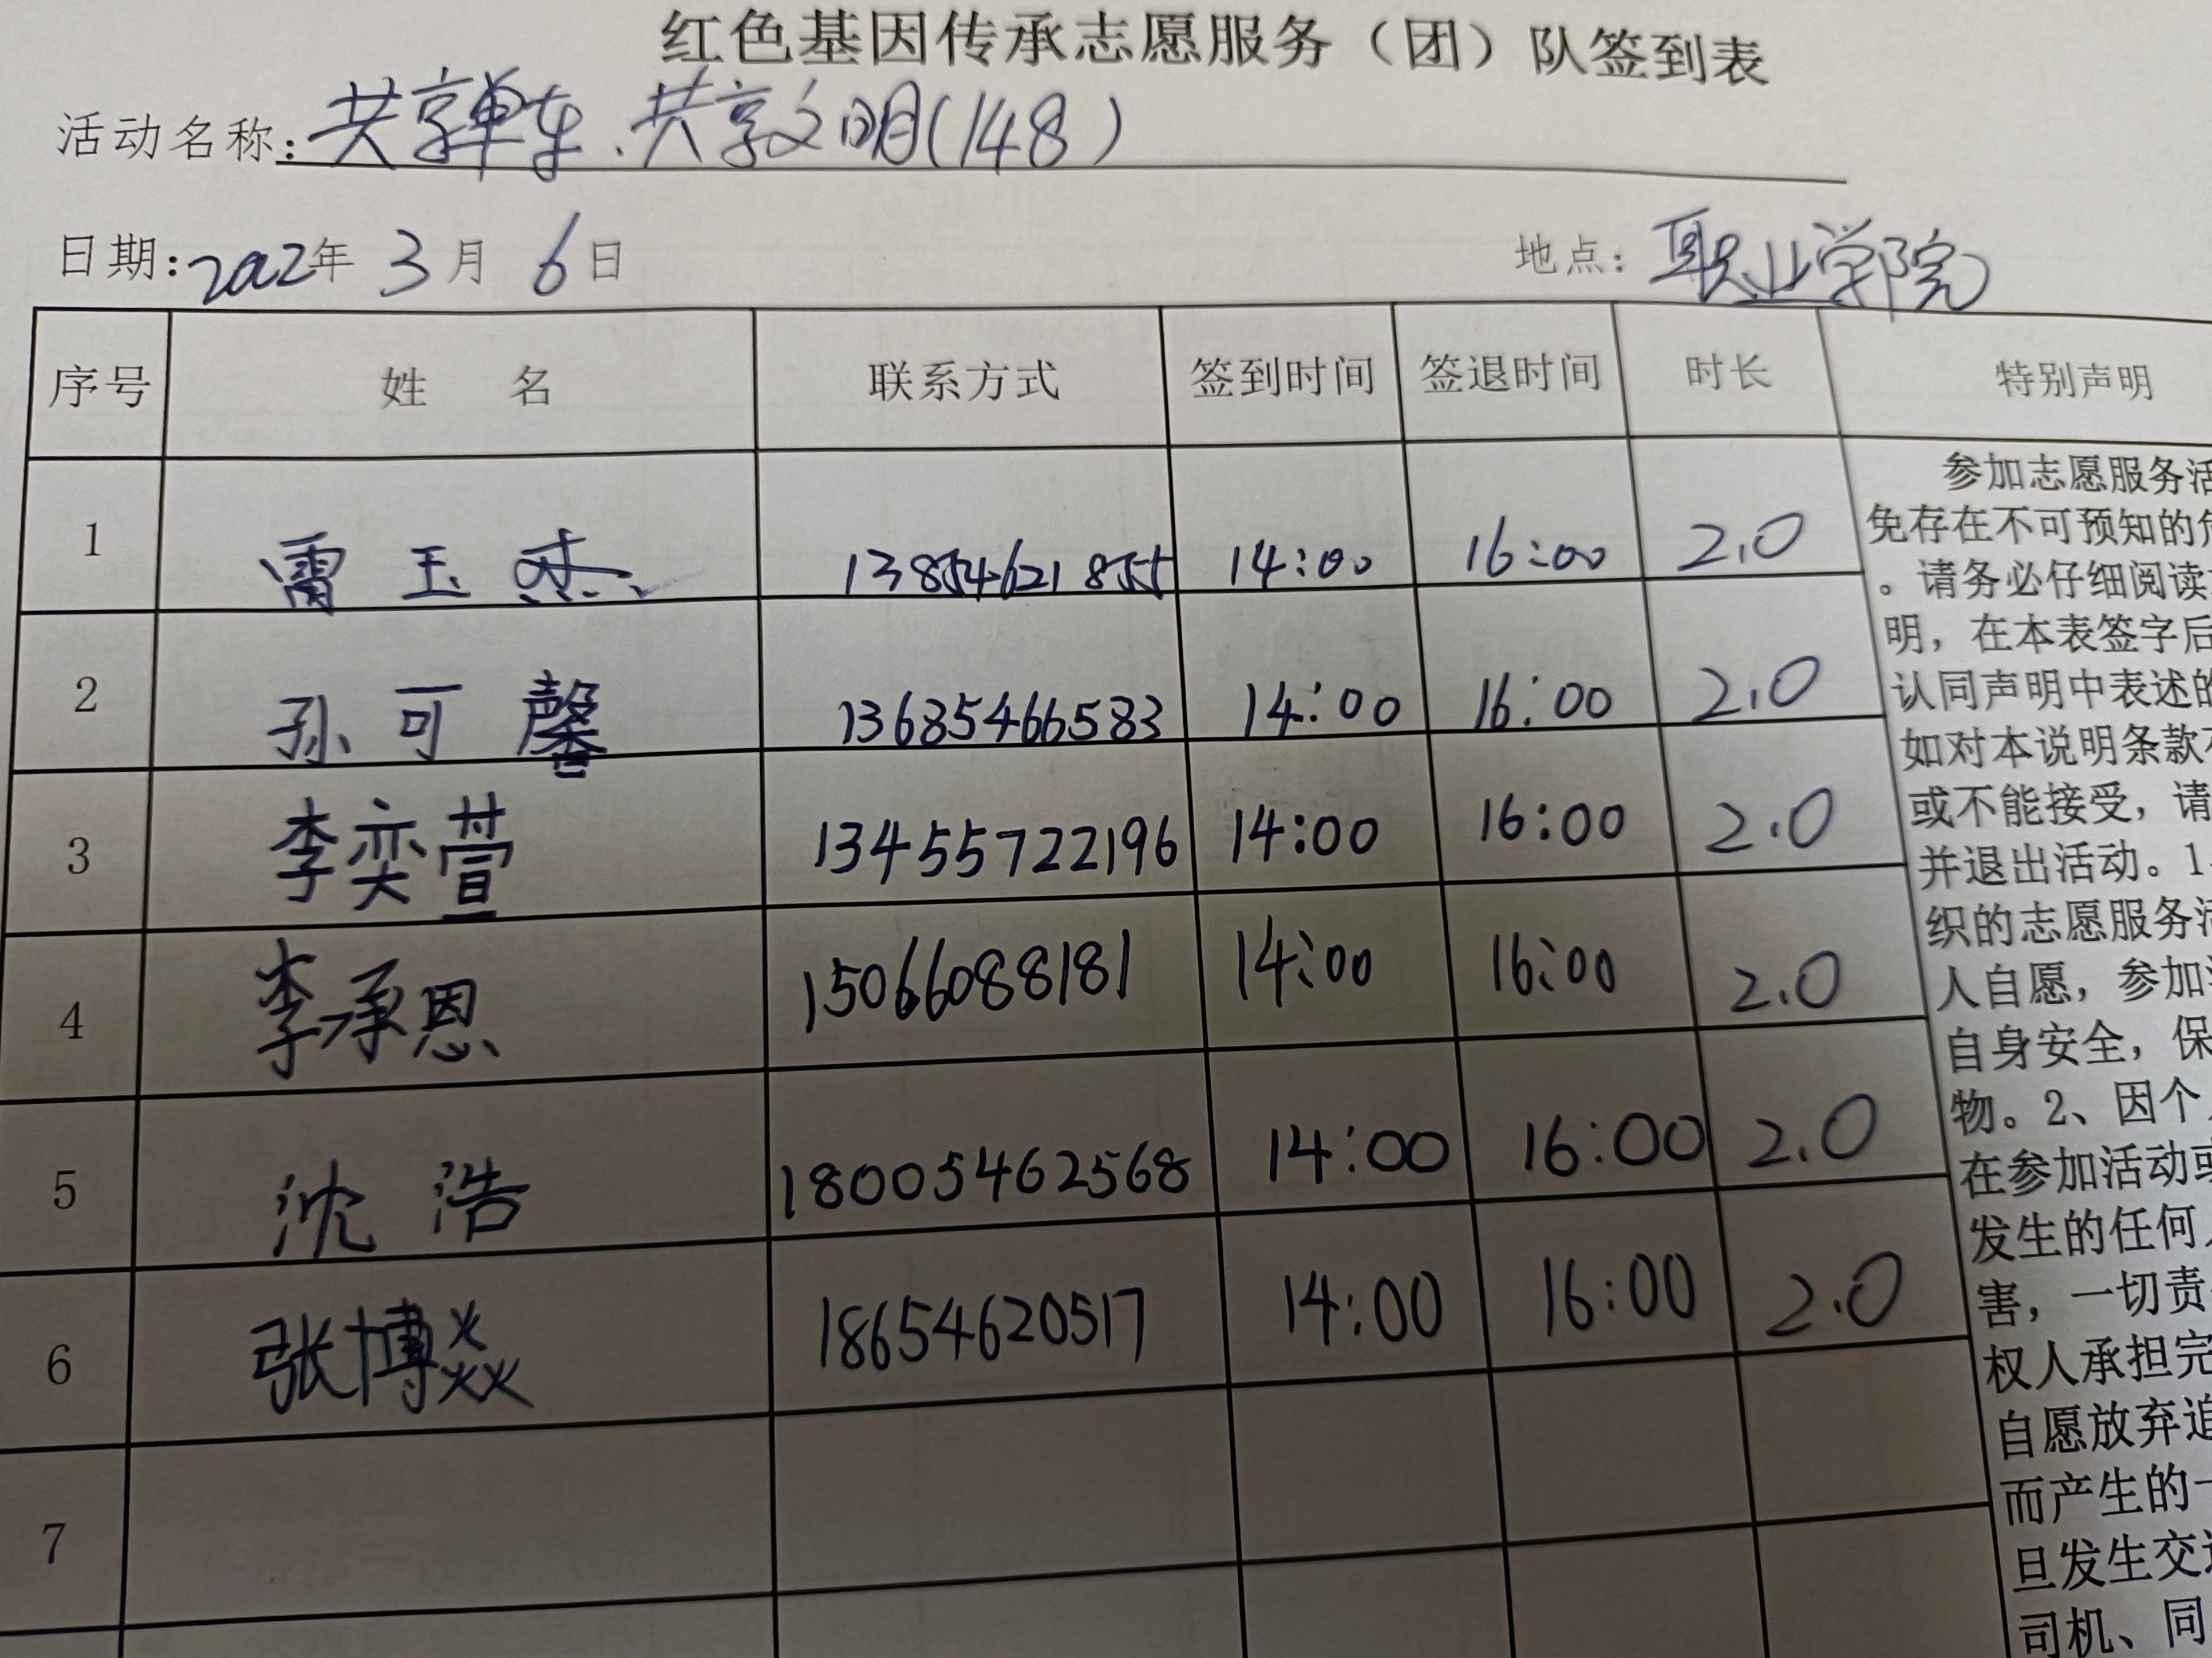 红色基因传承志愿服务（团）队签到表
活动名称：共享单车、共享文明(148)
日期：2022年 3 月 6 日 地点：职业学院
序号 姓 名 联系方式 签到时间 签退时间 时长 特别声明
1 雷玉杰 13854621855 14:00 16:00 2.0
2 孙可馨 13685466583 14:00 16:00 2.0
3 李奕萱 13455722196 14:00 16:00 2.0
4 李承恩 15066088181 14:00 16:00 2.0
5 沈浩 18005462568 14:00 16:00 2.0
6 张博焱 18654620517 14:00 16:00 2.0
7
参加志愿服务活
免存在不可预知的危
。请务必仔细阅读
明，在本表签字后
认同声明中表述的
如对本说明条款有
或不能接受，请
并退出活动。1
织的志愿服务活
人自愿，参加
自身安全，保
物。2、因个
在参加活动或
发生的任何
害，一切责
权人承担完
自愿放弃追
而产生的一
旦发生交通
司机、同